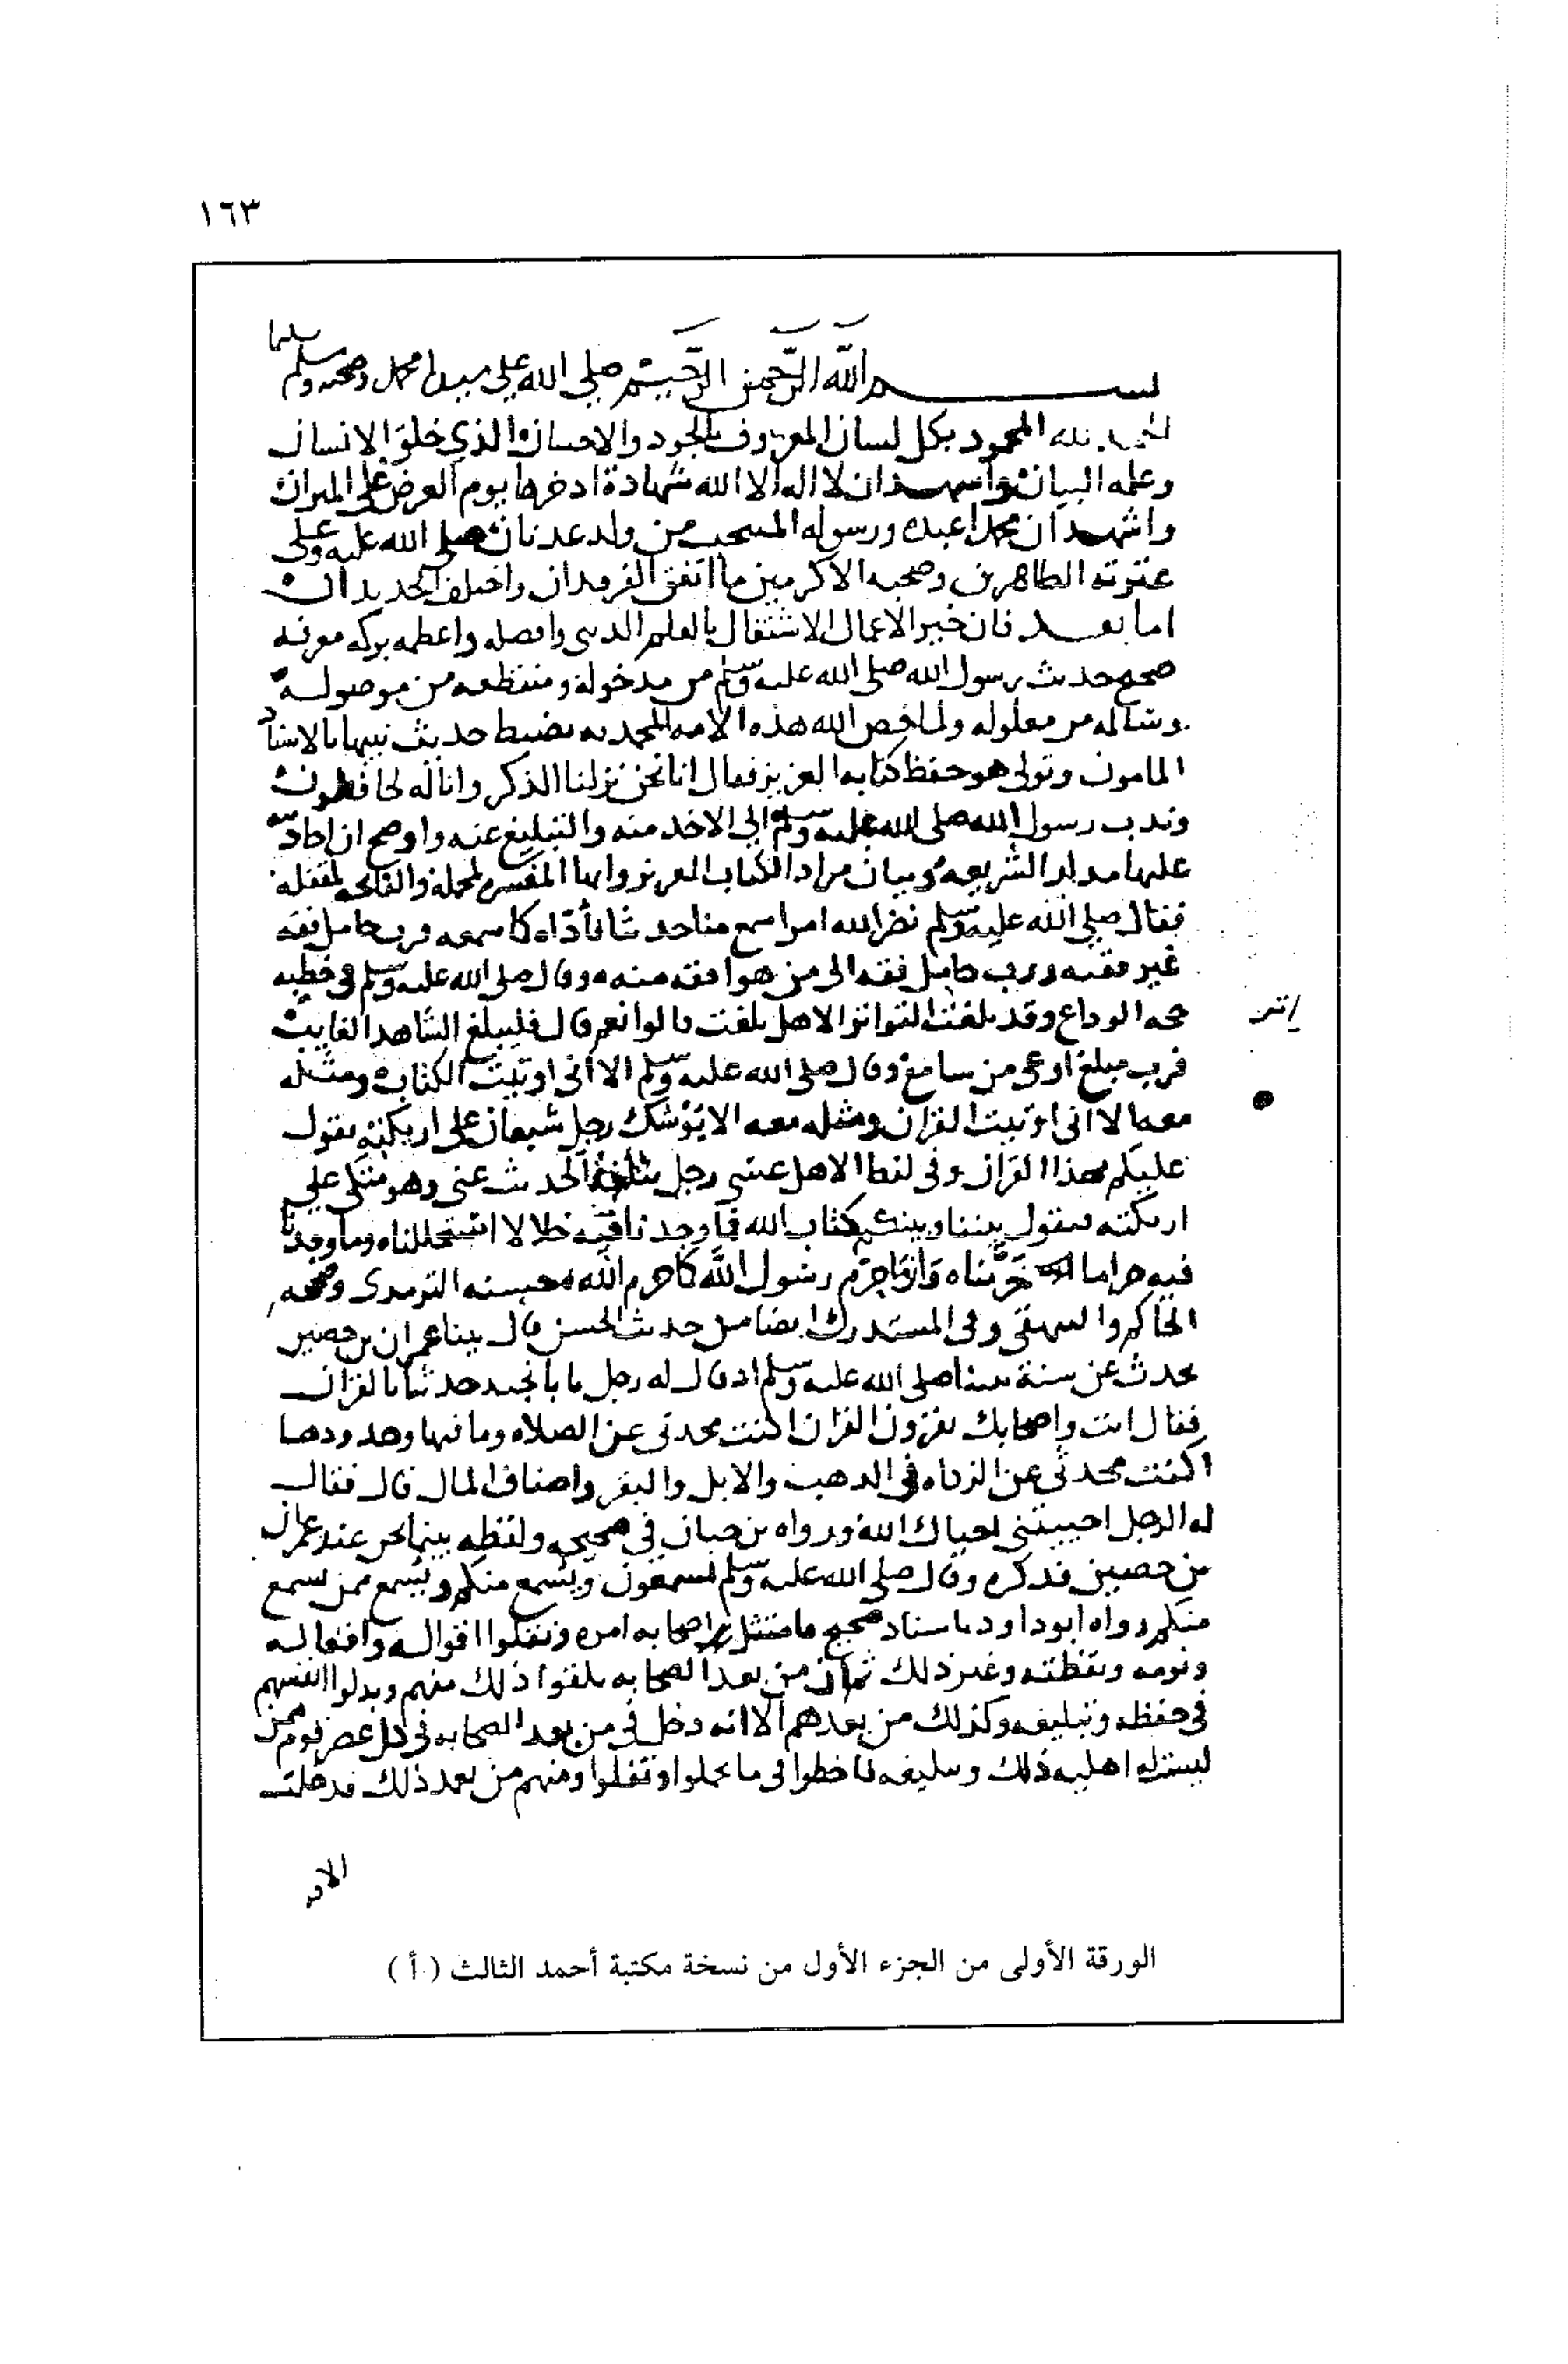 ١٦٣
بسم الله الرحمن الرحيم صلى الله على سيدنا محمد وصحبه وسلم
الحمد لله المحمود بكل لسان المعروف بالجود والاحسان الذي خلق الانسان
وعلمه البيان واشهد ان لا اله الا الله شهادة ادخرها يوم العرض على الميزان
واشهد ان محمدا عبده ورسوله المنتخب من ولد عدنان صلى الله عليه وعلى
عترته الطاهرين وصحبه الاكرمين ما اتفق الفرقدان واختلف الجديدان
اما بعد فان خير الاعمال الاشتغال بالعلم الديني وافضله واعظمه بركه معرفه
صحيح حديث رسول الله صلى الله عليه وسلم من مدخوله ومنقطعه من موصوله
وسالمه من معلوله ولما خص الله هذه الامه المحمديه بضبط حديث نبيها بالاسناد
المامون وتولى هو حفظ كتابه العزيز فقال انا نحن نزلنا الذكر وانا له لحافظون
وندب رسول الله صلى الله عليه وسلم الي الاخذ منه والتبليغ عنه واوضح ان احاديثه
عليها مدار الشريعه وبيان مراد الكتاب العزيز وانها المفسره لمجمله والفاتحه لمقفله
فقال صلى الله عليه وسلم نضر الله امرا سمع منا حديثا فأداه كما سمعه فرب حامل فقه
غير فقيه ورب حامل فقه الى من هو افقه منه وقال صلى الله عليه وسلم في خطبه
حجه الوداع وقد بلغت التواتر الا هل بلغت قالوا نعم قال فليبلغ الشاهد الغايب
فرب مبلغ اوعى من سامع وقال صلى الله عليه وسلم الا أني اوتيت الكتاب ومثله
معه الا اني اوتيت القران ومثله معه الا يوشك رجل شبعان على اريكته يقول
عليكم بهذا القران وفي لفظ الا هل عسى رجل يبلغه الحديث عني وهو متكي علي
اريكته فيقول بيننا وبينكم كتاب الله فما وجدنا فيه حلالا استحللناه وما وجدنا
فيه حراما حرمناه وان ما حرم رسول الله كما حرم الله حسنه الترمذى وصححه
الحاكم والبيهقي وفي المستدرك ايضا من حديث الحسن قال بينا عمران بن حصين
يحدث عن سنة نبينا صلى الله عليه وسلم اذ قال له رجل يا با نجيد حدثنا بالقران
فقال انت واصحابك تقرون القران اكنت محدثي عن الصلاه وما فيها وحدودها
اكنت محدثي عن الزكاه في الذهب والابل والبقر واصناف المال قال فقال
له الرجل احييتني احياك الله ورواه بن حبان في صحيحه ولفظه بينما نحن عند عمران
بن حصين فذكره وقال صلى الله عليه وسلم تسمعون ويسمع منكم ويسمع ممن سمع
منكم رواه ابو داود باسناد صحيح فامتثل اصحابه امره ونقلوا اقواله وافعاله
ونومه ويقظته وغير ذلك ثم ان من بعد الصحابه تلقوا ذلك منهم وبذلوا انفسهم
في حفظه وتبليغه وكذلك من بعدهم الا انه دخل في من بعد الصحابه في كل عصر قوم ممن
ليست له اهليه ذلك وتبليغه فاخطوا في ما تحملوا ونقلوا ومنهم من بعد ذلك فدخلت
الورقة الأولى من الجزء الأول من نسخة مكتبة أحمد الثالث ( أ )